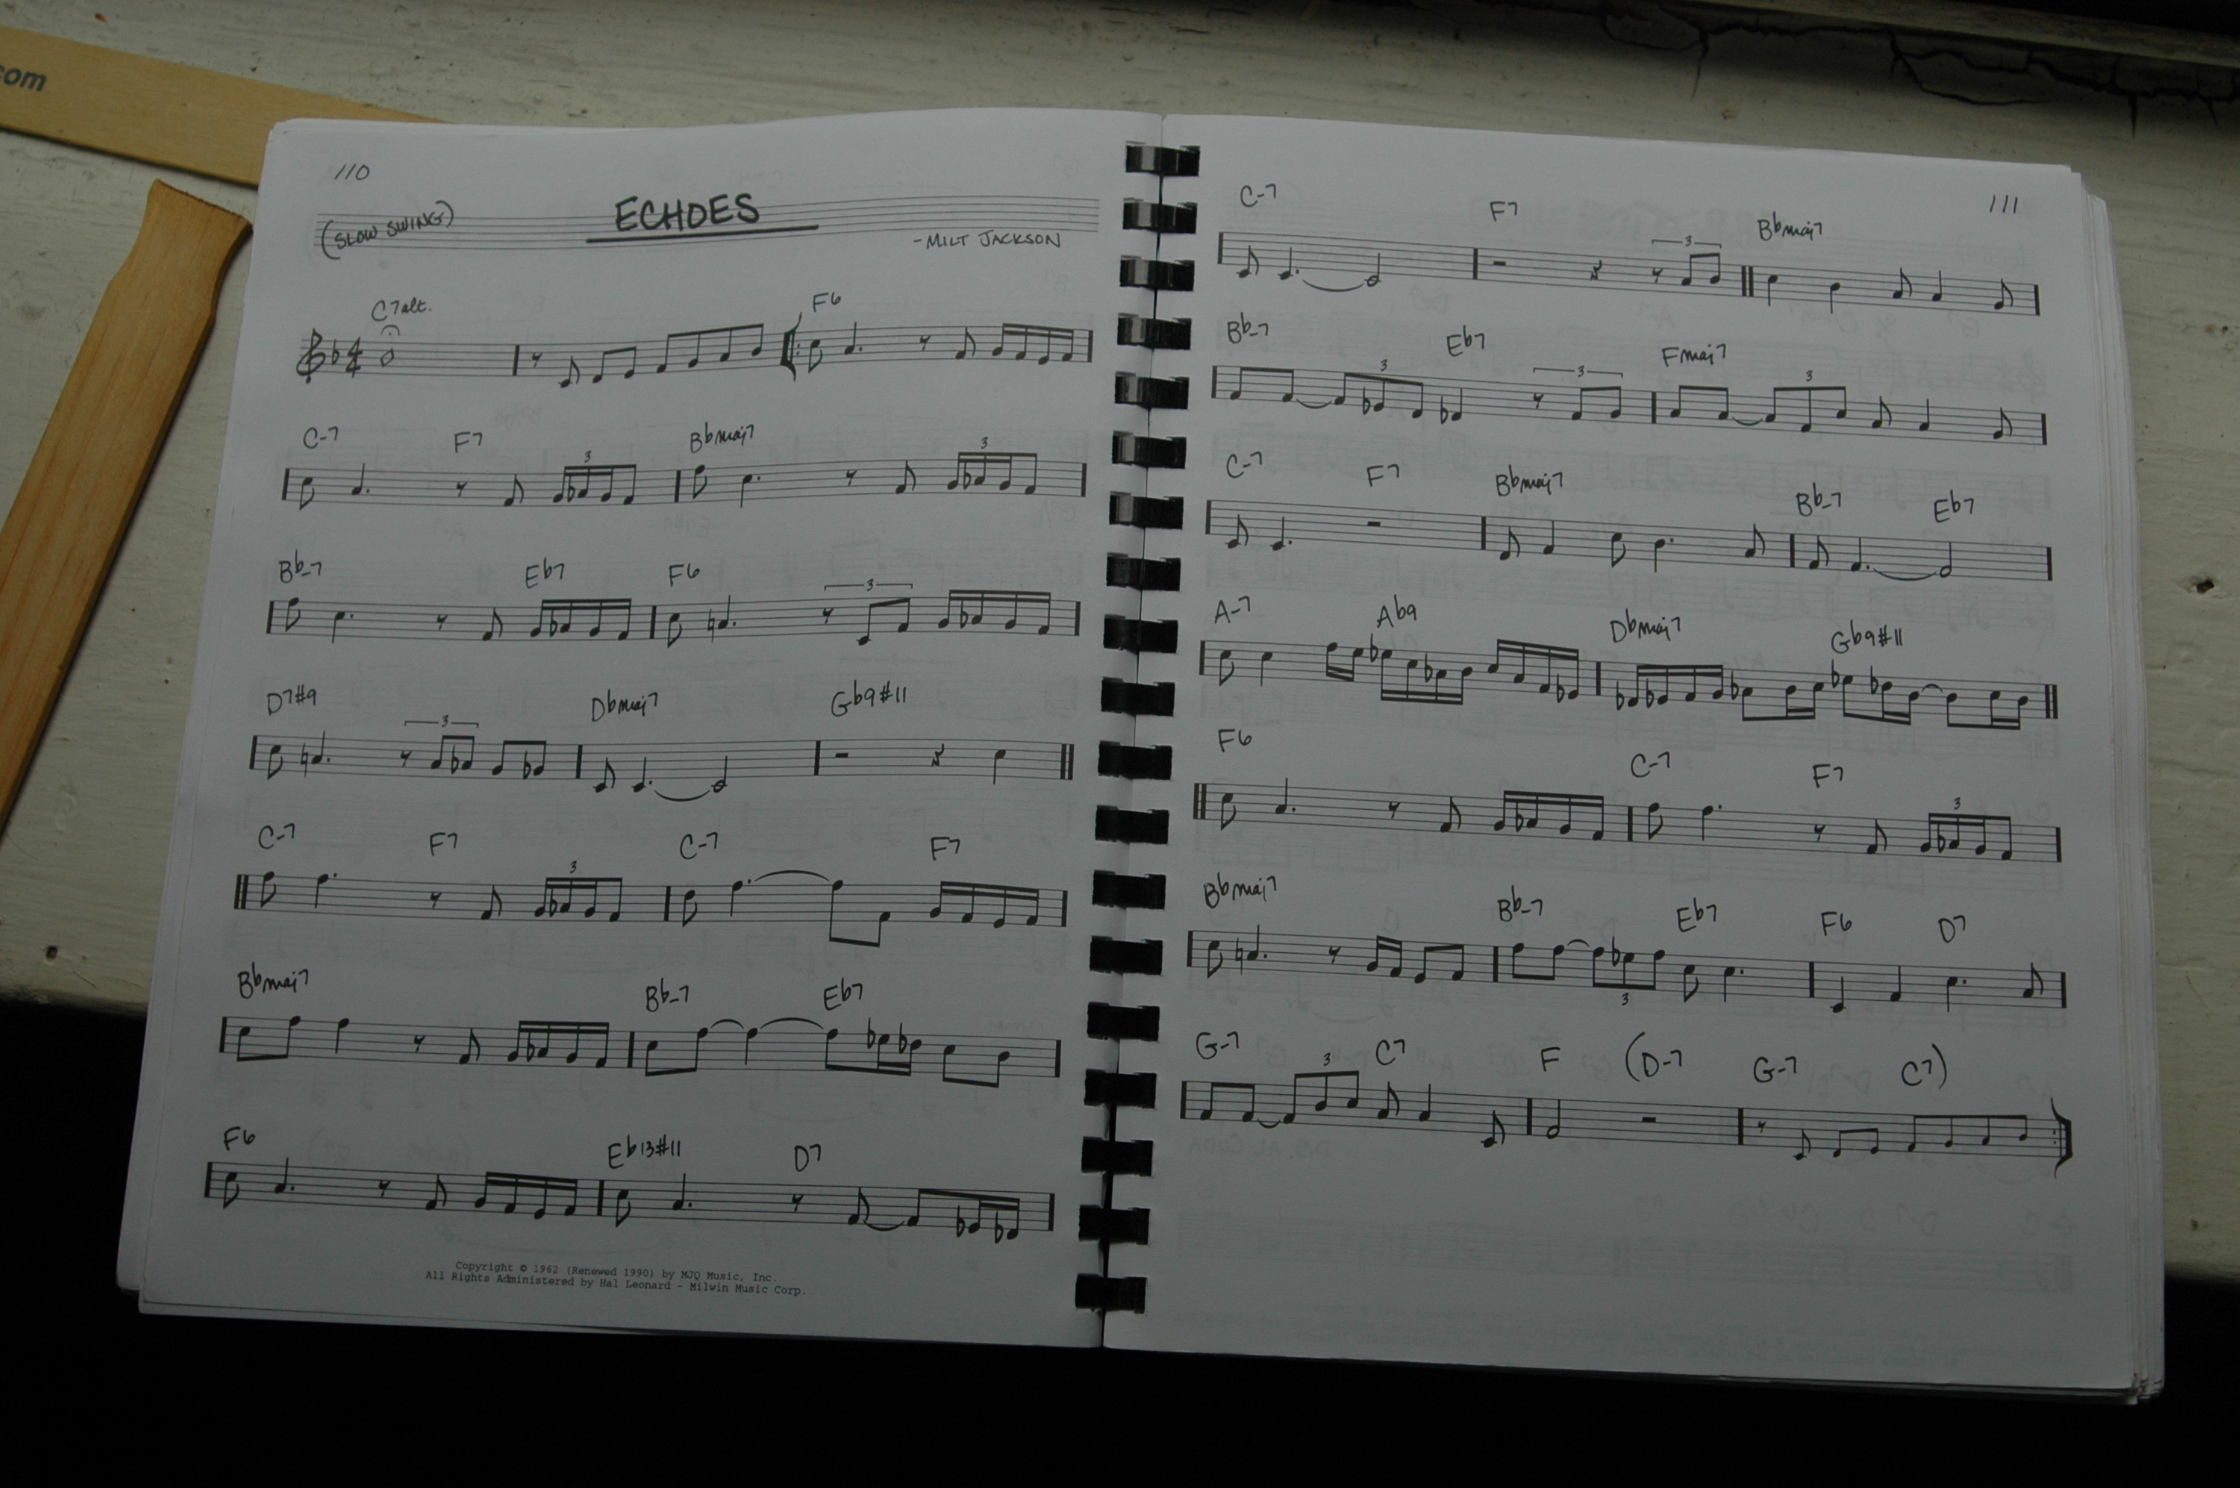 com
110
(SLOW SWING)
ECHOES
-MILT JACKSON
C7alt. F6
C-7 F7 Bbmaj7
3 3
Bb-7 Eb7 F6
3
D7#9 Dbmaj7 Gb9#11
3
C-7 F7 C-7 F7
3
Bbmaj7 Bb-7 Eb7
F6 Eb13#11 D7
Copyright © 1962 (Renewed 1990) by MJQ Music, Inc.
All Rights Administered by Hal Leonard - Milwin Music Corp.
111
C-7 F7 Bbmaj7
3
Bb-7 Eb7 Fmaj7
3 3 3
C-7 F7 Bbmaj7 Bb-7 Eb7
A-7 Ab9 Dbmaj7 Gb9#11
F6 C-7 F7
3
Bbmaj7 Bb-7 Eb7 F6 D7
3
G-7 C7 F (D-7 G-7 C7)
3